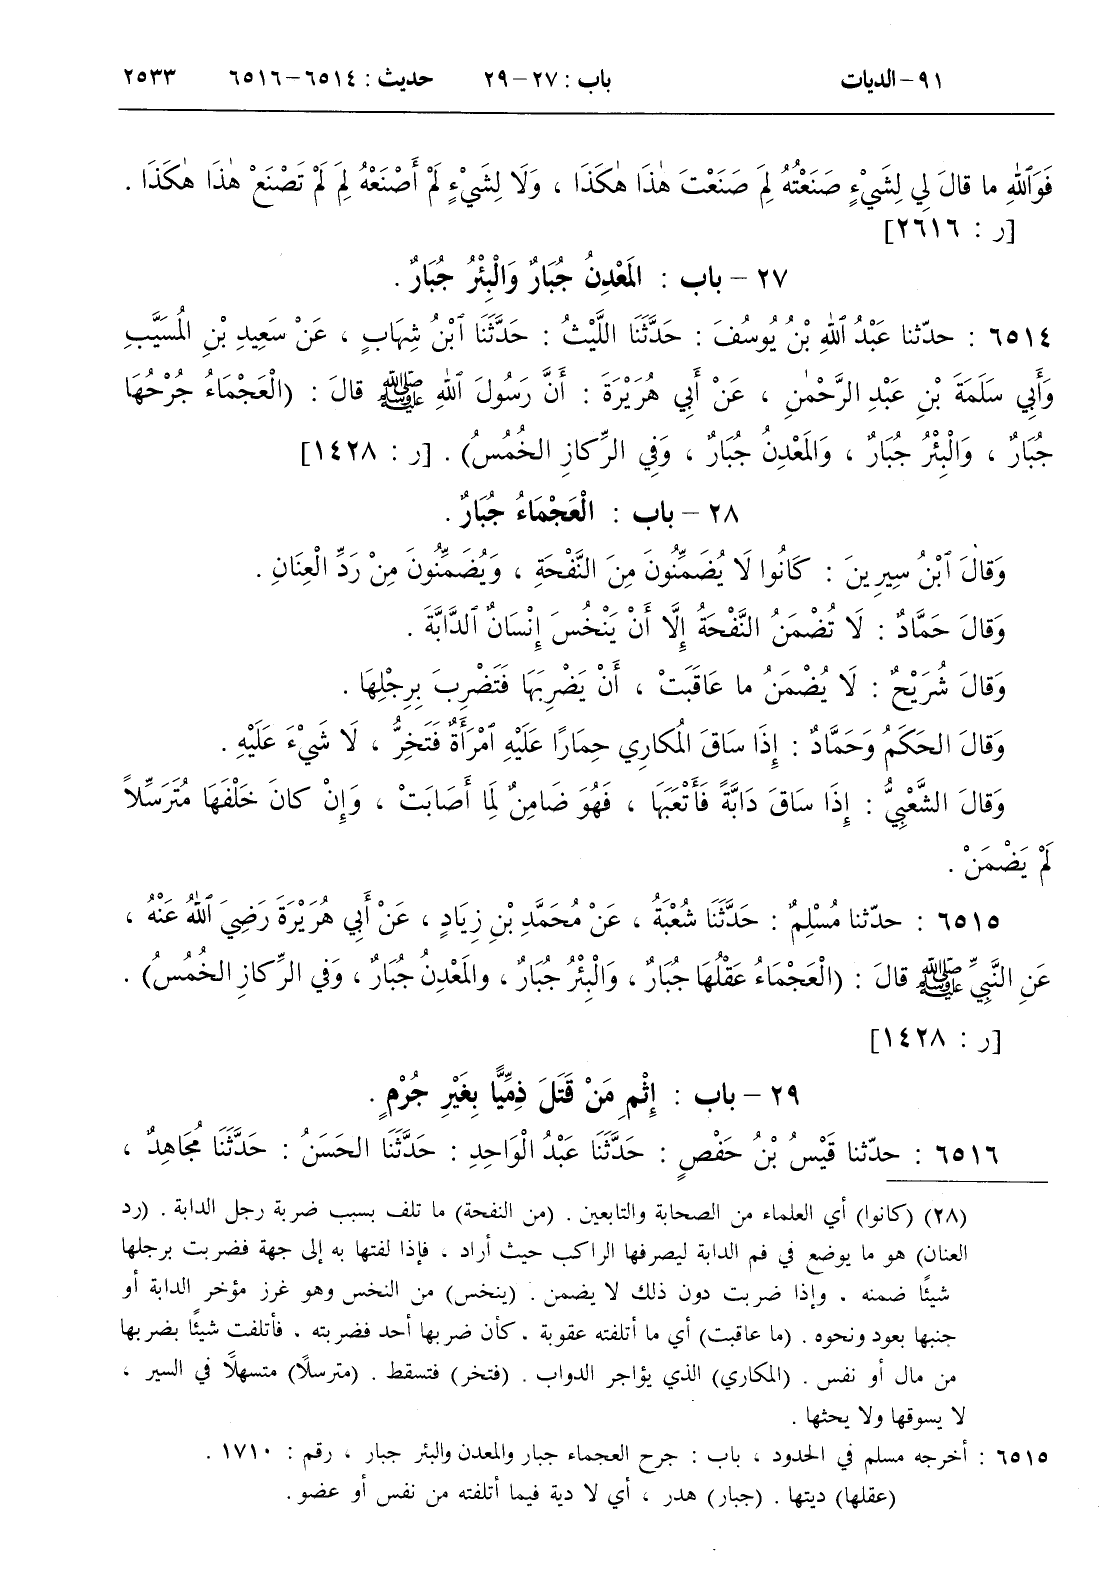 ٩١- الديات باب : ٢٧-٢٩ حديث : ٦٥١٤-٦٥١٦ ٢٥٣٣
فَوَٱللهِ ما قالَ لِي لِشَيْءٍ صَنَعْتُهُ لِمَ صَنَعْتَ هٰذَا هٰكَذَا ، وَلَا لِشَيْءٍ لَمْ أَصْنَعْهُ لِمَ لَمْ تَصْنَعْ هٰذَا هٰكَذَا .
[ر : ٢٦١٦]
٢٧ - باب : المَعْدِنُ جُبَارٌ وَالْبِئْرُ جُبَارٌ .
٦٥١٤ : حدّثنا عَبْدُ ٱللهِ بْنُ يُوسُفَ : حَدَّثَنَا اللَّيْثُ : حَدَّثَنَا ٱبْنُ شِهَابٍ ، عَنْ سَعِيدِ بْنِ الْمُسَيَّبِ
وَأَبِي سَلَمَةَ بْنِ عَبْدِ الرَّحْمٰنِ ، عَنْ أَبِي هُرَيْرَةَ : أَنَّ رَسُولَ ٱللهِ ﷺ قالَ : (الْعَجْمَاءُ جُرْحُهَا
جُبَارٌ ، وَالْبِئْرُ جُبَارٌ ، وَالمَعْدِنُ جُبَارٌ ، وَفِي الرِّكازِ الخُمُسُ) . [ر : ١٤٢٨]
٢٨ - باب : الْعَجْمَاءُ جُبَارٌ .
وَقالَ ٱبْنُ سِيرِينَ : كَانُوا لَا يُضَمِّنُونَ مِنَ النَّفْحَةِ ، وَيُضَمِّنُونَ مِنْ رَدِّ الْعِنَانِ .
وَقالَ حَمَّادٌ : لَا تُضْمَنُ النَّفْحَةُ إِلَّا أَنْ يَنْخُسَ إِنْسَانٌ ٱلدَّابَّةَ .
وَقالَ شُرَيْحٌ : لَا يُضْمَنُ ما عَاقَبَتْ ، أَنْ يَضْرِبَهَا فَتَضْرِبَ بِرِجْلِهَا .
وَقالَ الحَكَمُ وَحَمَّادٌ : إِذَا سَاقَ المُكارِي حِمَارًا عَلَيْهِ ٱمْرَأَةٌ فَتَخِرُّ ، لَا شَيْءَ عَلَيْهِ .
وَقالَ الشَّعْبِيُّ : إِذَا سَاقَ دَابَّةً فَأَتْعَبَهَا ، فَهُوَ ضَامِنٌ لِمَا أَصَابَتْ ، وَإِنْ كانَ خَلْفَهَا مُتَرَسِّلاً
لَمْ يَضْمَنْ .
٦٥١٥ : حدّثنا مُسْلِمٌ : حَدَّثَنَا شُعْبَةُ ، عَنْ مُحَمَّدِ بْنِ زِيَادٍ ، عَنْ أَبِي هُرَيْرَةَ رَضِيَ ٱللهُ عَنْهُ ،
عَنِ النَّبِيِّ ﷺ قالَ : (الْعَجْمَاءُ عَقْلُهَا جُبَارٌ ، وَالْبِئْرُ جُبَارٌ ، والمَعْدِنُ جُبَارٌ ، وَفي الرِّكازِ الخُمُسُ) .
[ر : ١٤٢٨]
٢٩ - باب : إِثْمِ مَنْ قَتَلَ ذِمِّيًّا بِغَيْرِ جُرْمٍ .
٦٥١٦ : حدّثنا قَيْسُ بْنُ حَفْصٍ : حَدَّثَنَا عَبْدُ الْوَاحِدِ : حَدَّثَنَا الحَسَنُ : حَدَّثَنَا مُجَاهِدٌ ،
(٢٨) (كانوا) أي العلماء من الصحابة والتابعين . (من النفحة) ما تلف بسبب ضربة رجل الدابة . (رد
العنان) هو ما يوضع في فم الدابة ليصرفها الراكب حيث أراد ، فإذا لفتها به إلى جهة فضربت برجلها
شيئًا ضمنه . وإذا ضربت دون ذلك لا يضمن . (ينخس) من النخس وهو غرز مؤخر الدابة أو
جنبها بعود ونحوه . (ما عاقبت) أي ما أتلفته عقوبة . كأن ضربها أحد فضربته . فأتلفت شيئًا بضربها
من مال أو نفس . (المكاري) الذي يؤاجر الدواب . (فتخر) فتسقط . (مترسلًا) متسهلًا في السير ،
لا يسوقها ولا يحثها .
٦٥١٥ : أخرجه مسلم في الحدود ، باب : جرح العجماء جبار والمعدن والبئر جبار ، رقم : ١٧١٠ .
(عقلها) ديتها . (جبار) هدر ، أي لا دية فيما أتلفته من نفس أو عضو .